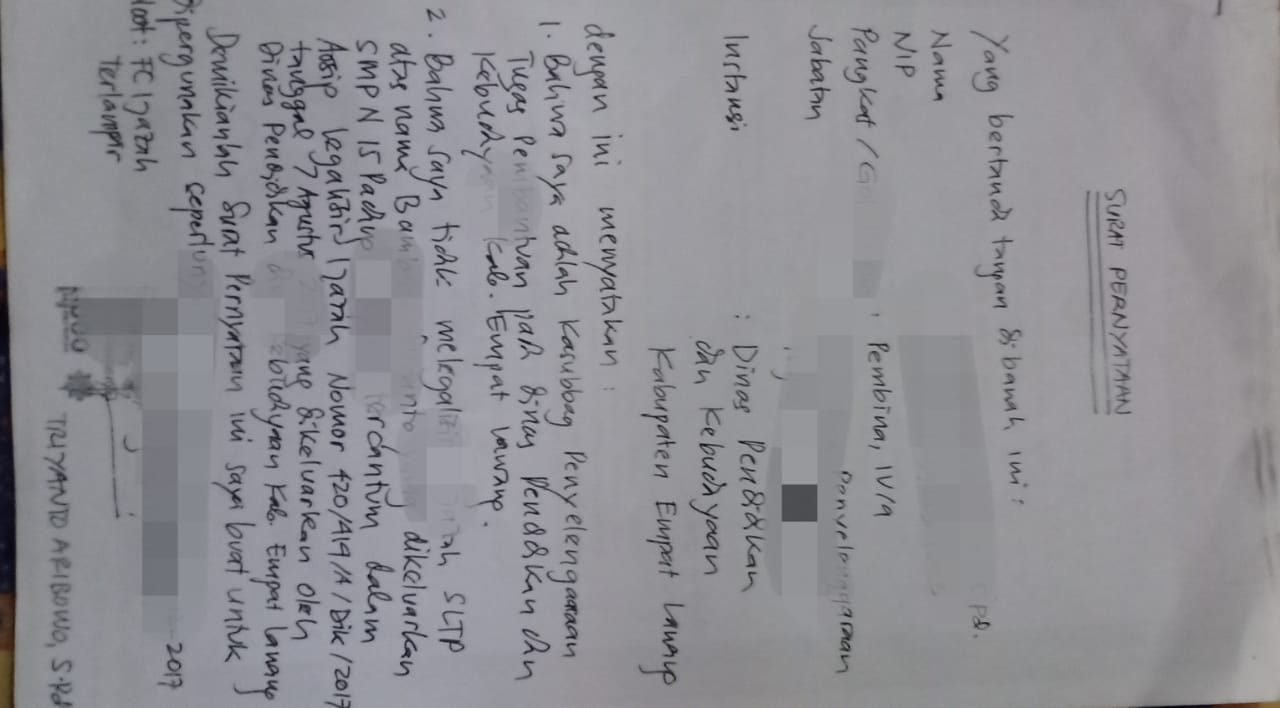 SURAT PERNYATAAN
Yang bertanda tangan dibawah ini :
S Pd.
Nama
NIP
Pangkat / Gol : Pembina, IV/a
Jabatan : Penyelenggaraan
Instansi : Dinas Pendidikan
dan Kebudayaan
Kabupaten Empat Lawang
dengan ini menyatakan :
1. Bahwa saya adalah Kasubbag Penyelenggaraan
Tugas Pembantuan pada dinas Pendidikan dan
Kebudayaan Kab. Empat Lawang.
2. Bahwa saya tidak melegalisir Ijazah SLTP
atas nama yang dikeluarkan
SMP N 15 tercantum dalam
Arsip legalisir Ijazah Nomor 420/419/A/Dik/2017
tanggal 7 Agustus yang dikeluarkan oleh
Dinas Pendidikan Kebudayaan Kab. Empat Lawang
Demikianlah Surat Pernyataan ini saya buat untuk
dipergunakan seperlunya
Noot : FC Ijazah
Terlampir
2017
TRI YANTO ARIBOWO, S.Pd